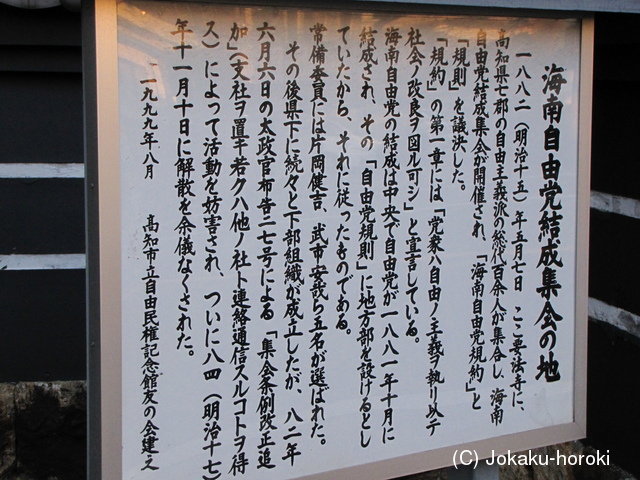 海南自由党結成集会の地
一八八二（明治十五）年五月七日 ここ要法寺に、
高知県七郡の自由主義派の総代百余人が集合し、海南
自由党結成集会が開催され、「海南自由党規約」と
「規則」を議決した。
「規約」の第一章には「党衆ハ自由ノ主義ヲ執リ以テ
社会ノ改良ヲ図ル可シ」と宣言している。
海南自由党の結成は中央で自由党が一八八一年十月に
結成され、その「自由党規則」に地方部を設けるとし
ていたから、それに従ったものである。
常備委員には片岡健吉、武市安哉ら五名が選ばれた。
その後県下に続々と下部組織が成立したが、八二年
六月六日の太政官布告二七号による「集会条例改正追
加」（支社ヲ置キ若クハ他ノ社ト連絡通信スルコトヲ得
ス）によって活動を妨害され、ついに八四（明治十七）
年十一月十日に解散を余儀なくされた。
一九九九年八月 高知市立自由民権記念館友の会建之
(C) Jokaku-horoki